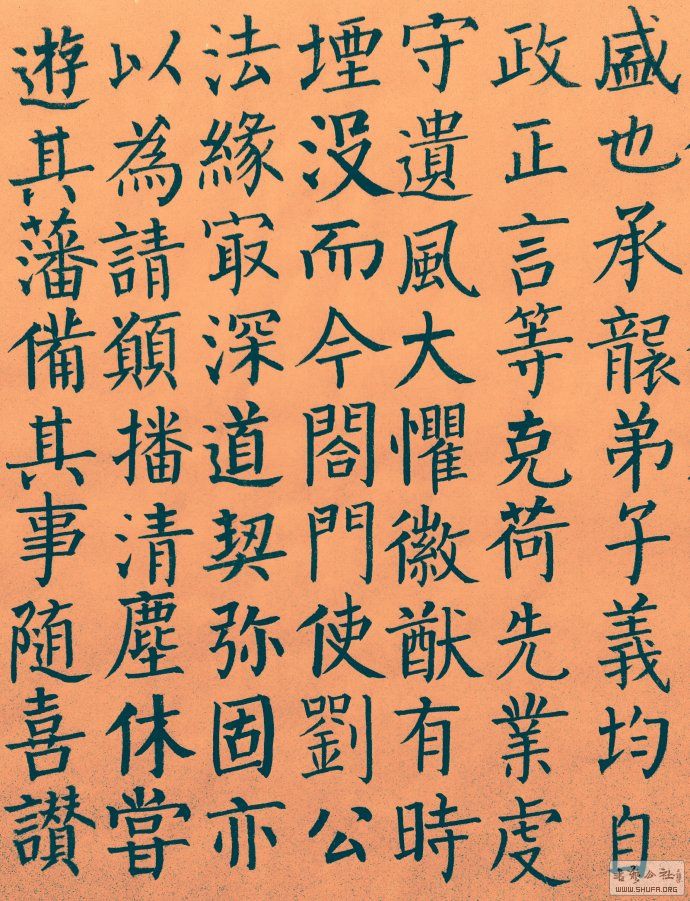 盛也承襲弟子義均自
政正言等克荷先業虔
守遺風大懼徽猷有時
堙没而今閤門使劉公
法緣冣深道契弥固亦
以為請願播清塵休甞
遊其藩備其事随喜讃
WWW.SHUFA.ORG